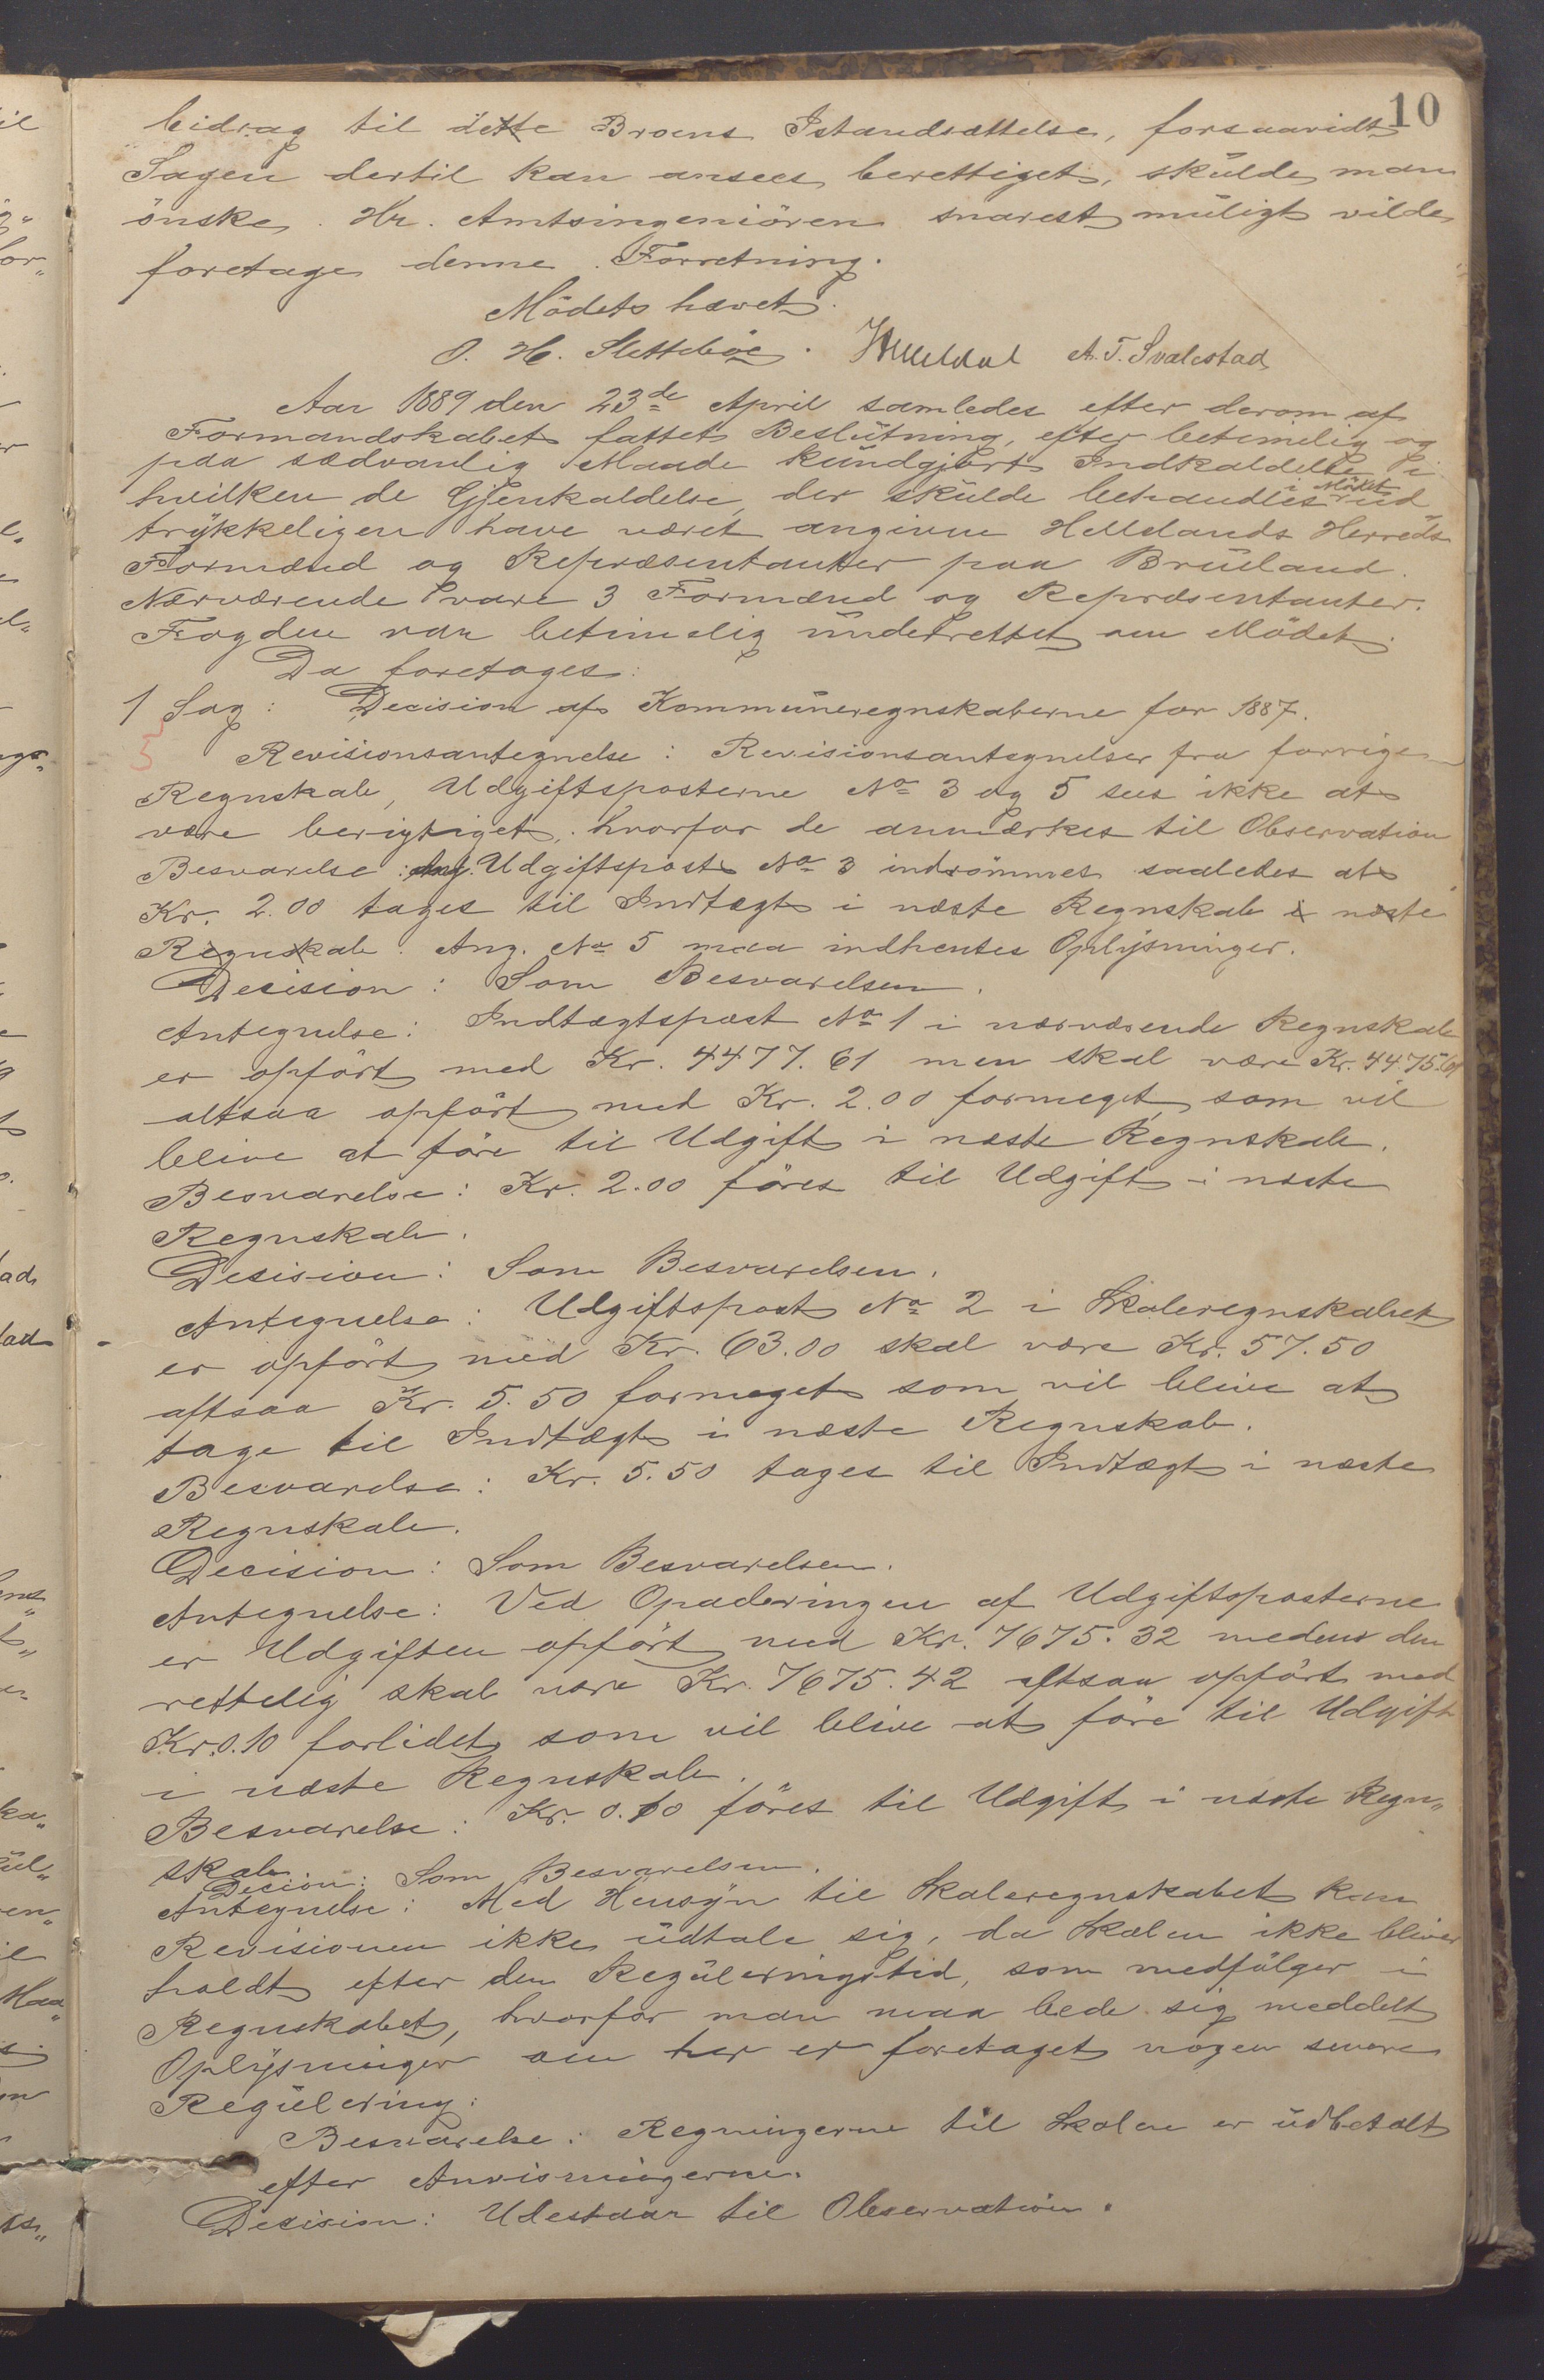 10
bidrag til dette Broens Istandsættelse, forsaavidt
Sagen dertil kan ansees berettiget, skulde man
önske Hr. Amtsingeniören snarest muligt vilde
foretage denne Forretning.
Mödet hævet.
O. H. Sletteböe. A. T. Svalestad
Aar 1889 den 23de April samledes efter derom af
Formandskabet fattet Beslutning, efter betimelig og
paa sædvanlig Maade kundgjort Indkaldelse i
hvilken de Gjenkaldelse, der skulde behandles i Mödet ud
trykkeligen have været angivne Hellelands Herreds
Formænd og Repræsentanter paa Brueland.
Nærværende vare 3 Formænd og Repræsentanter.
Fogden var betimelig underrettet om Mödet.
Da foretoges:
1 Sag: Decision af Kommuneregnskaberne for 1887.
5 Revisionsantegnelse: Revisionsantegnelser fra forrige
Regnskab, Udgiftsposterne No 3 og 5 sees ikke at
være berigtiget, hvorfor de anmærkes til Observation
Besvarelse: Ang. Udgiftspost No 3 indrömmes saaledes at
Kr. 2.00 tages til Indtægt i næste Regnskab i næste
Regnskab. Ang. No 5 maa indhentes Oplysninger.
Desision: Som Besvarelsen.
Antegnelse: Indtægtspost No 1 i nærværende Regnskab
er opfört med Kr. 4477.61 men skal være Kr. 4475.61
altsaa opfört med Kr. 2.00 formeget som vil
blive at före til Udgift i næste Regnskab.
Besvarelse: Kr. 2.00 föres til Udgift i næste
Regnskab.
Desision: Som Besvarelsen.
Antegnelse: Udgiftspost No 2 i Skoleregnskabet
er opfört med Kr. 63.00 skal være Kr. 57.50
altsaa Kr. 5.50 formeget som vil blive at
tage til Indtægt i næste Regnskab.
Besvarelse: Kr. 5.50 tages til Indtægt i næste
Regnskab.
Decision: Som Besvarelsen.
Antegnelse: Ved Opaderingen af Udgiftsposterne
er Udgiften opfört med Kr. 7675.32 medens den
rettelig skal være Kr. 7675.42 altsaa opfört med
Kr. 0.10 forlidet som vil blive at före til Udgift
i næste Regnskab.
Besvarelse: Kr. 0.10 föres til Udgift i næste Regn„
skab
Decion: Som Besvarelsen.
Antegnelse: Med Hensyn til Skoleregnskabet kan
Revisionen ikke udtale sig, da Skolen ikke bliver
holdt efter den Reguleringstid, som medfölger i
Regnskabet, hvorfor man maa bede sig meddelt
Oplysninger om her er foretaget nogen senere
Regulering.
Besvarelse: Regningerne til Skolen er udbetalt
efter Anvisningerne.
Decision: Udestaar til Observation.